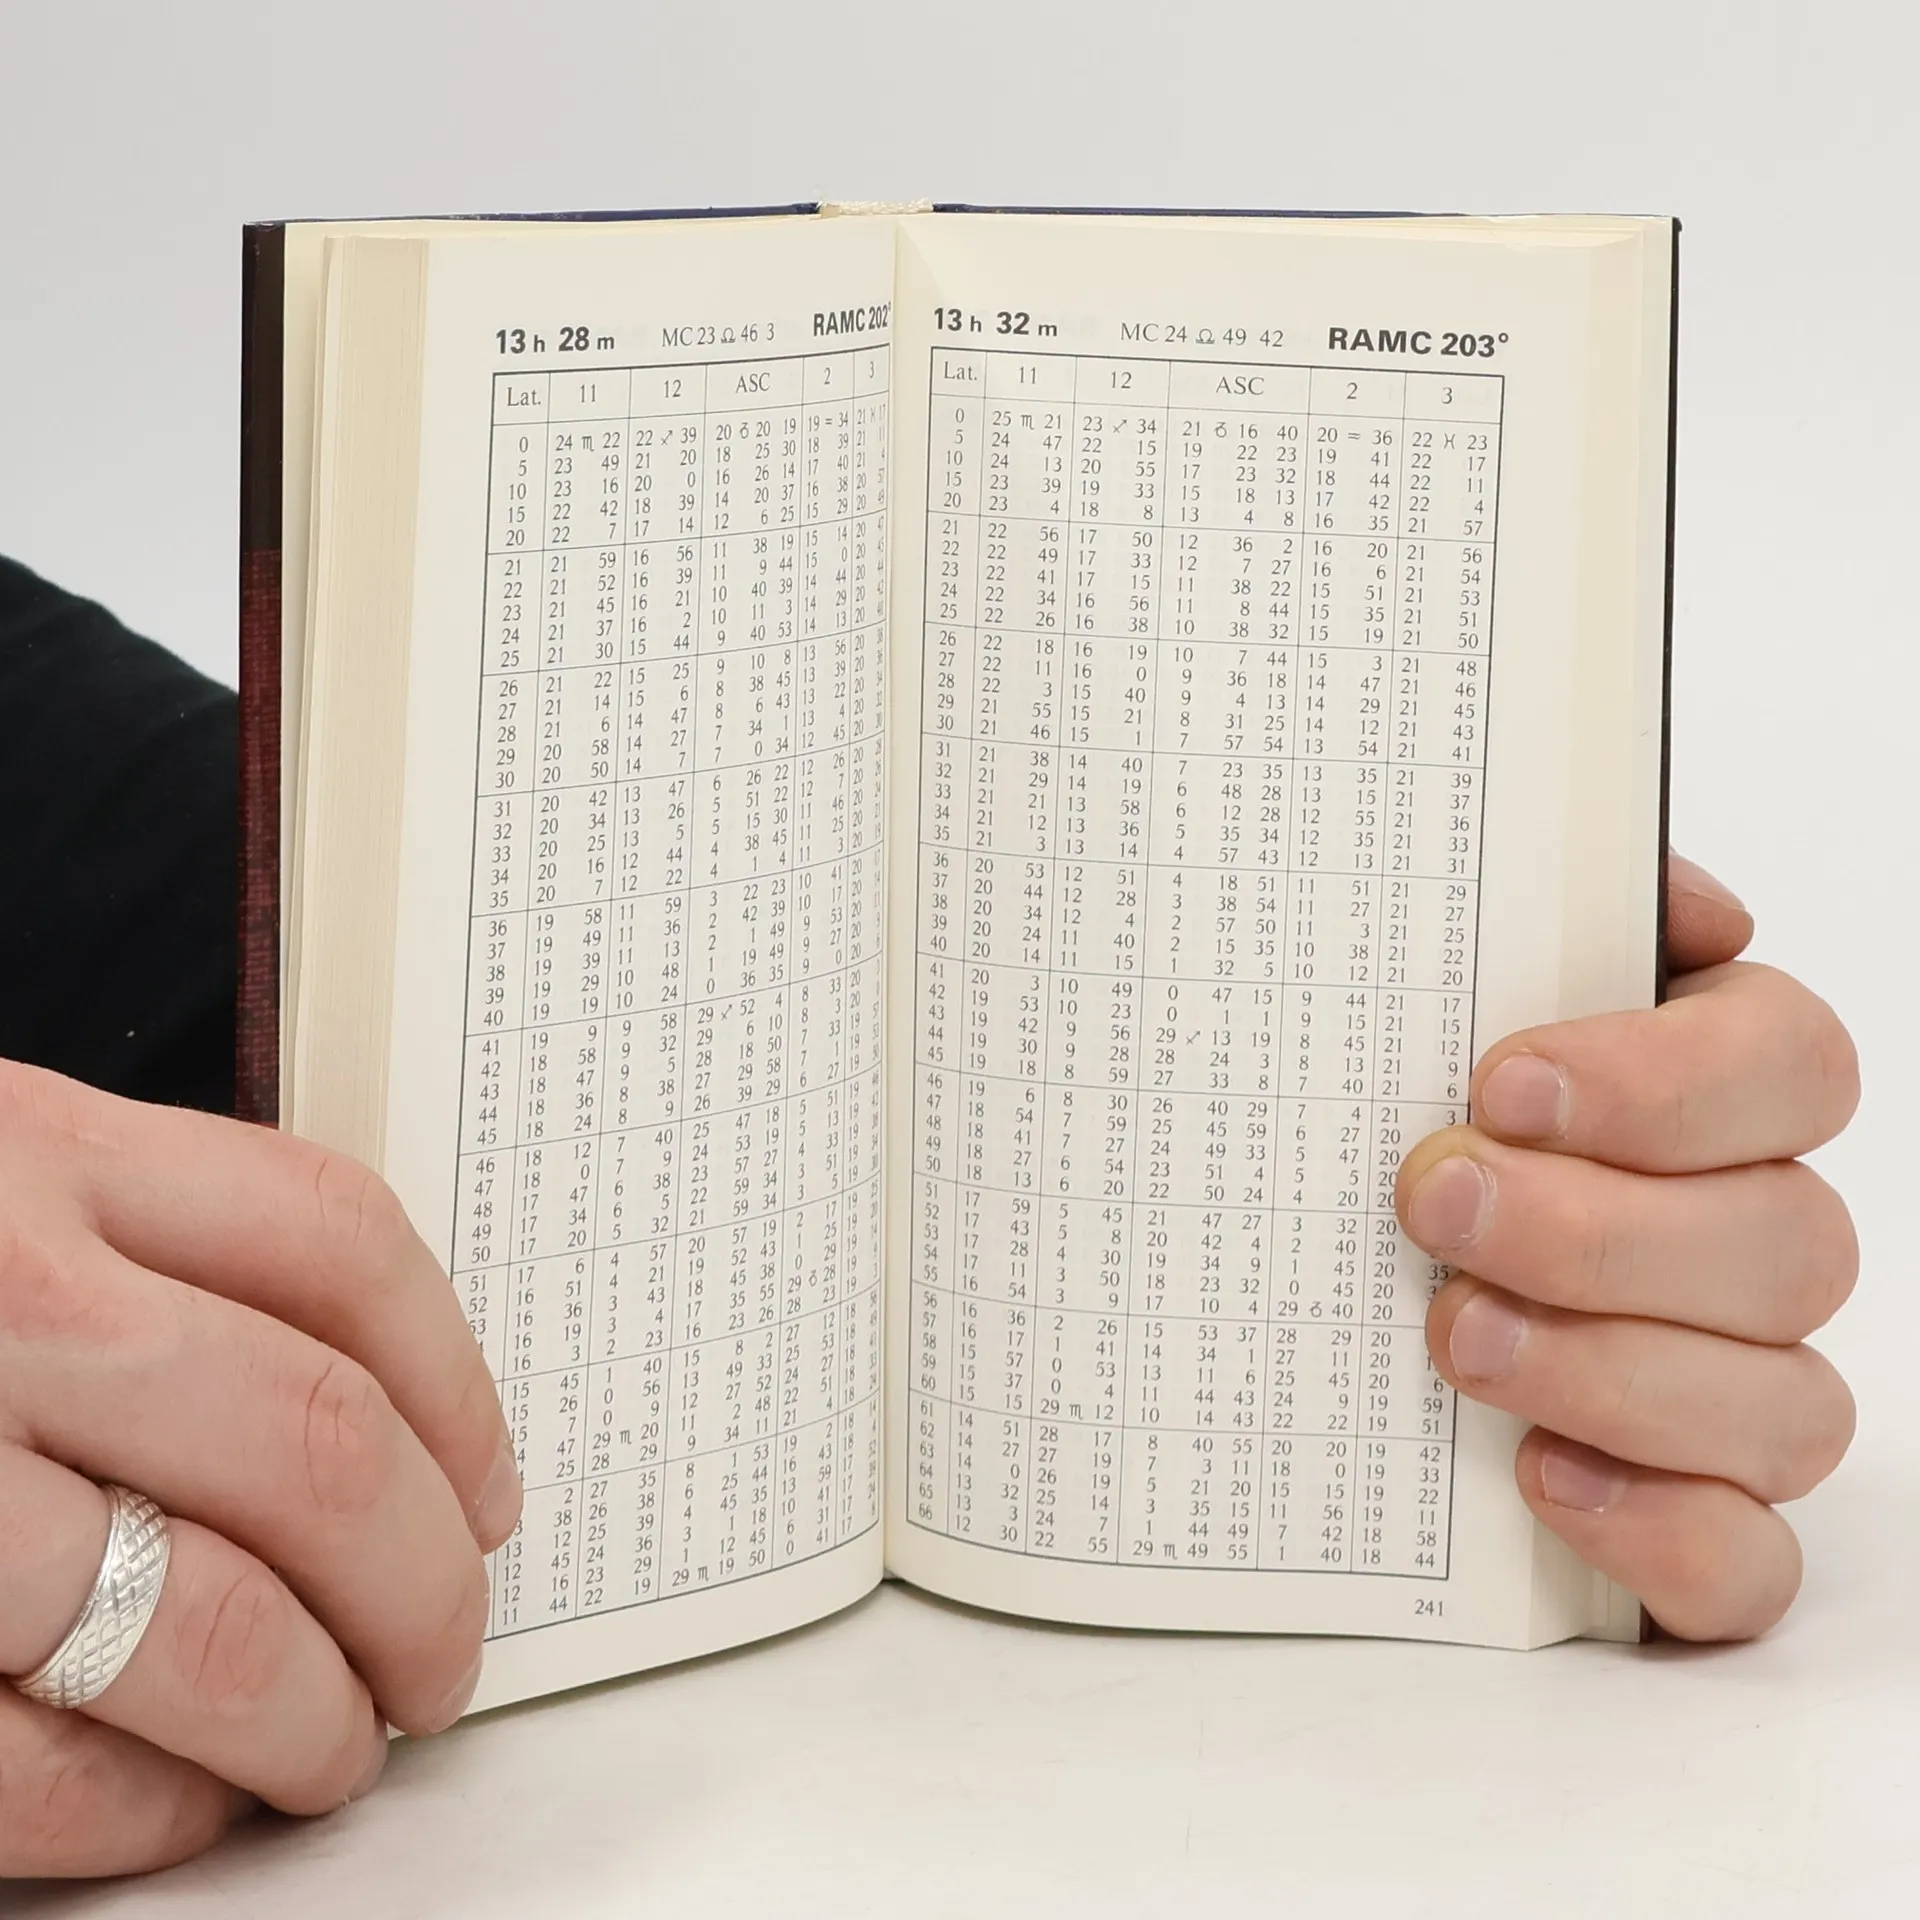 13 h 28 m MC 23 ♎ 46 3 RAMC 202°
Lat. 11 12 ASC 2 3
0 24 ♏ 22 22 ♐ 39 20 ♑ 20 19 19 ♒ 34 21 ♓ 17
5 23 49 21 20 18 25 30 18 39 21 11
10 23 16 20 0 16 26 14 17 40 21 4
15 22 42 18 39 14 20 37 16 38 20 57
20 22 7 17 14 12 6 25 15 29 20 49
21 21 59 16 56 11 38 19 15 14 20 47
22 21 52 16 39 11 9 44 15 0 20 45
23 21 45 16 21 10 40 39 14 44 20 44
24 21 37 16 2 10 11 3 14 29 20 42
25 21 30 15 44 9 40 53 14 13 20 40
26 21 22 15 25 9 10 8 13 56 20 38
27 21 14 15 6 8 38 45 13 39 20 36
28 21 6 14 47 8 6 43 13 22 20 34
29 20 58 14 27 7 34 1 13 4 20 32
30 20 50 14 7 7 0 34 12 45 20 30
31 20 42 13 47 6 26 22 12 26 20 28
32 20 34 13 26 5 51 22 12 7 20 26
33 20 25 13 5 5 15 30 11 46 20 24
34 20 16 12 44 4 38 45 11 25 20 21
35 20 7 12 22 4 1 4 11 3 20 19
36 19 58 11 59 3 22 23 10 41 20 17
37 19 49 11 36 2 42 39 10 17 20 14
38 19 39 11 13 2 1 49 9 53 20 11
39 19 29 10 48 1 19 49 9 27 20 9
40 19 19 10 24 0 36 35 9 0 20 6
41 19 9 9 58 29 ♐ 52 4 8 33 20 3
42 18 58 9 32 29 6 10 8 3 20 0
43 18 47 9 5 28 18 50 7 33 19 57
44 18 36 8 38 27 29 58 7 1 19 53
45 18 24 8 9 26 39 29 6 27 19 50
46 18 12 7 40 25 47 18 5 51 19 46
47 18 0 7 9 24 53 19 5 13 19 42
48 17 47 6 38 23 57 27 4 33 19 38
49 17 34 6 5 22 59 34 3 51 19 34
50 17 20 5 32 21 59 34 3 5 19 30
51 17 6 4 57 20 57 19 2 17 19 25
52 16 51 4 21 19 52 43 1 25 19 20
53 16 36 3 43 18 45 38 0 29 19 14
16 19 3 4 17 35 55 29 ♑ 28 19 9
16 3 2 23 16 23 26 28 23 19 3
15 45 1 40 15 8 2 27 12 18 56
15 26 0 56 13 49 33 25 53 18 49
15 7 0 9 12 27 52 24 27 18 41
47 29 ♏ 20 11 2 48 22 51 18 33
25 28 29 9 34 11 21 4 18 24
2 27 35 8 1 53 19 2 18 14
38 26 38 6 25 44 16 43 18 4
13 12 25 39 4 45 35 13 59 17 52
12 45 24 36 3 1 18 10 41 17 39
12 16 23 29 1 12 45 6 31 17 24
11 44 22 19 29 ♏ 19 50 0 41 17 8
13 h 32 m MC 24 ♎ 49 42 RAMC 203°
Lat. 11 12 ASC 2 3
0 25 ♏ 21 23 ♐ 34 21 ♑ 16 40 20 ♒ 36 22 ♓ 23
5 24 47 22 15 19 22 23 19 41 22 17
10 24 13 20 55 17 23 32 18 44 22 11
15 23 39 19 33 15 18 13 17 42 22 4
20 23 4 18 8 13 4 8 16 35 21 57
21 22 56 17 50 12 36 2 16 20 21 56
22 22 49 17 33 12 7 27 16 6 21 54
23 22 41 17 15 11 38 22 15 51 21 53
24 22 34 16 56 11 8 44 15 35 21 51
25 22 26 16 38 10 38 32 15 19 21 50
26 22 18 16 19 10 7 44 15 3 21 48
27 22 11 16 0 9 36 18 14 47 21 46
28 22 3 15 40 9 4 13 14 29 21 45
29 21 55 15 21 8 31 25 14 12 21 43
30 21 46 15 1 7 57 54 13 54 21 41
31 21 38 14 40 7 23 35 13 35 21 39
32 21 29 14 19 6 48 28 13 15 21 37
33 21 21 13 58 6 12 28 12 55 21 36
34 21 12 13 36 5 35 34 12 35 21 33
35 21 3 13 14 4 57 43 12 13 21 31
36 20 53 12 51 4 18 51 11 51 21 29
37 20 44 12 28 3 38 54 11 27 21 27
38 20 34 12 4 2 57 50 11 3 21 25
39 20 24 11 40 2 15 35 10 38 21 22
40 20 14 11 15 1 32 5 10 12 21 20
41 20 3 10 49 0 47 15 9 44 21 17
42 19 53 10 23 0 1 1 9 15 21 15
43 19 42 9 56 29 ♐ 13 19 8 45 21 12
44 19 30 9 28 28 24 3 8 13 21 9
45 19 18 8 59 27 33 8 7 40 21 6
46 19 6 8 30 26 40 29 7 4 21 3
47 18 54 7 59 25 45 59 6 27 20
48 18 41 7 27 24 49 33 5 47 20
49 18 27 6 54 23 51 4 5 5 20
50 18 13 6 20 22 50 24 4 20 20
51 17 59 5 45 21 47 27 3 32 20
52 17 43 5 8 20 42 4 2 40 20
53 17 28 4 30 19 34 9 1 45 20 35
54 17 11 3 50 18 23 32 0 45 20
55 16 54 3 9 17 10 4 29 ♑ 40 20
56 16 36 2 26 15 53 37 28 29 20
57 16 17 1 41 14 34 1 27 11 20
58 15 57 0 53 13 11 6 25 45 20 6
59 15 37 0 4 11 44 43 24 9 19 59
60 15 15 29 ♏ 12 10 14 43 22 22 19 51
61 14 51 28 17 8 40 55 20 20 19 42
62 14 27 27 19 7 3 11 18 0 19 33
63 14 0 26 19 5 21 20 15 15 19 22
64 13 32 25 14 3 35 15 11 56 19 11
65 13 3 24 7 1 44 49 7 42 18 58
66 12 30 22 55 29 ♏ 49 55 1 40 18 44
241